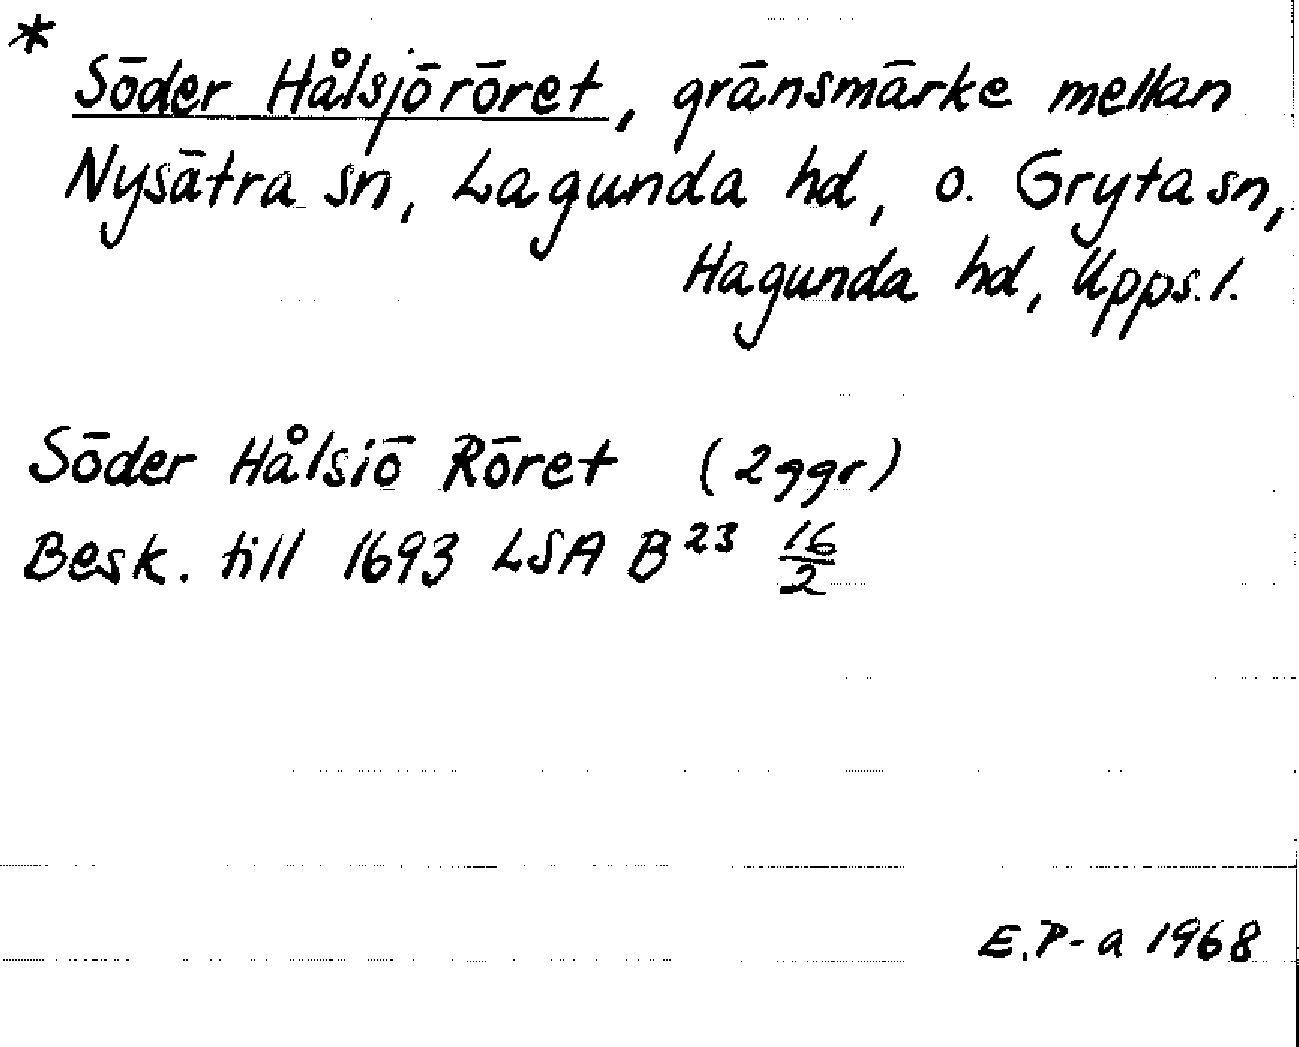 *
Söder Hålsjöröret, gränsmärke mellan
Nysätra sn, Lagunda hd, o. Gryta sn,
Hagunda hd, Upps. l.
Söder Hålsiö Röret (2 ggr)
Besk. till 1693 LSA B²³ 16/2
E.P-a 1968